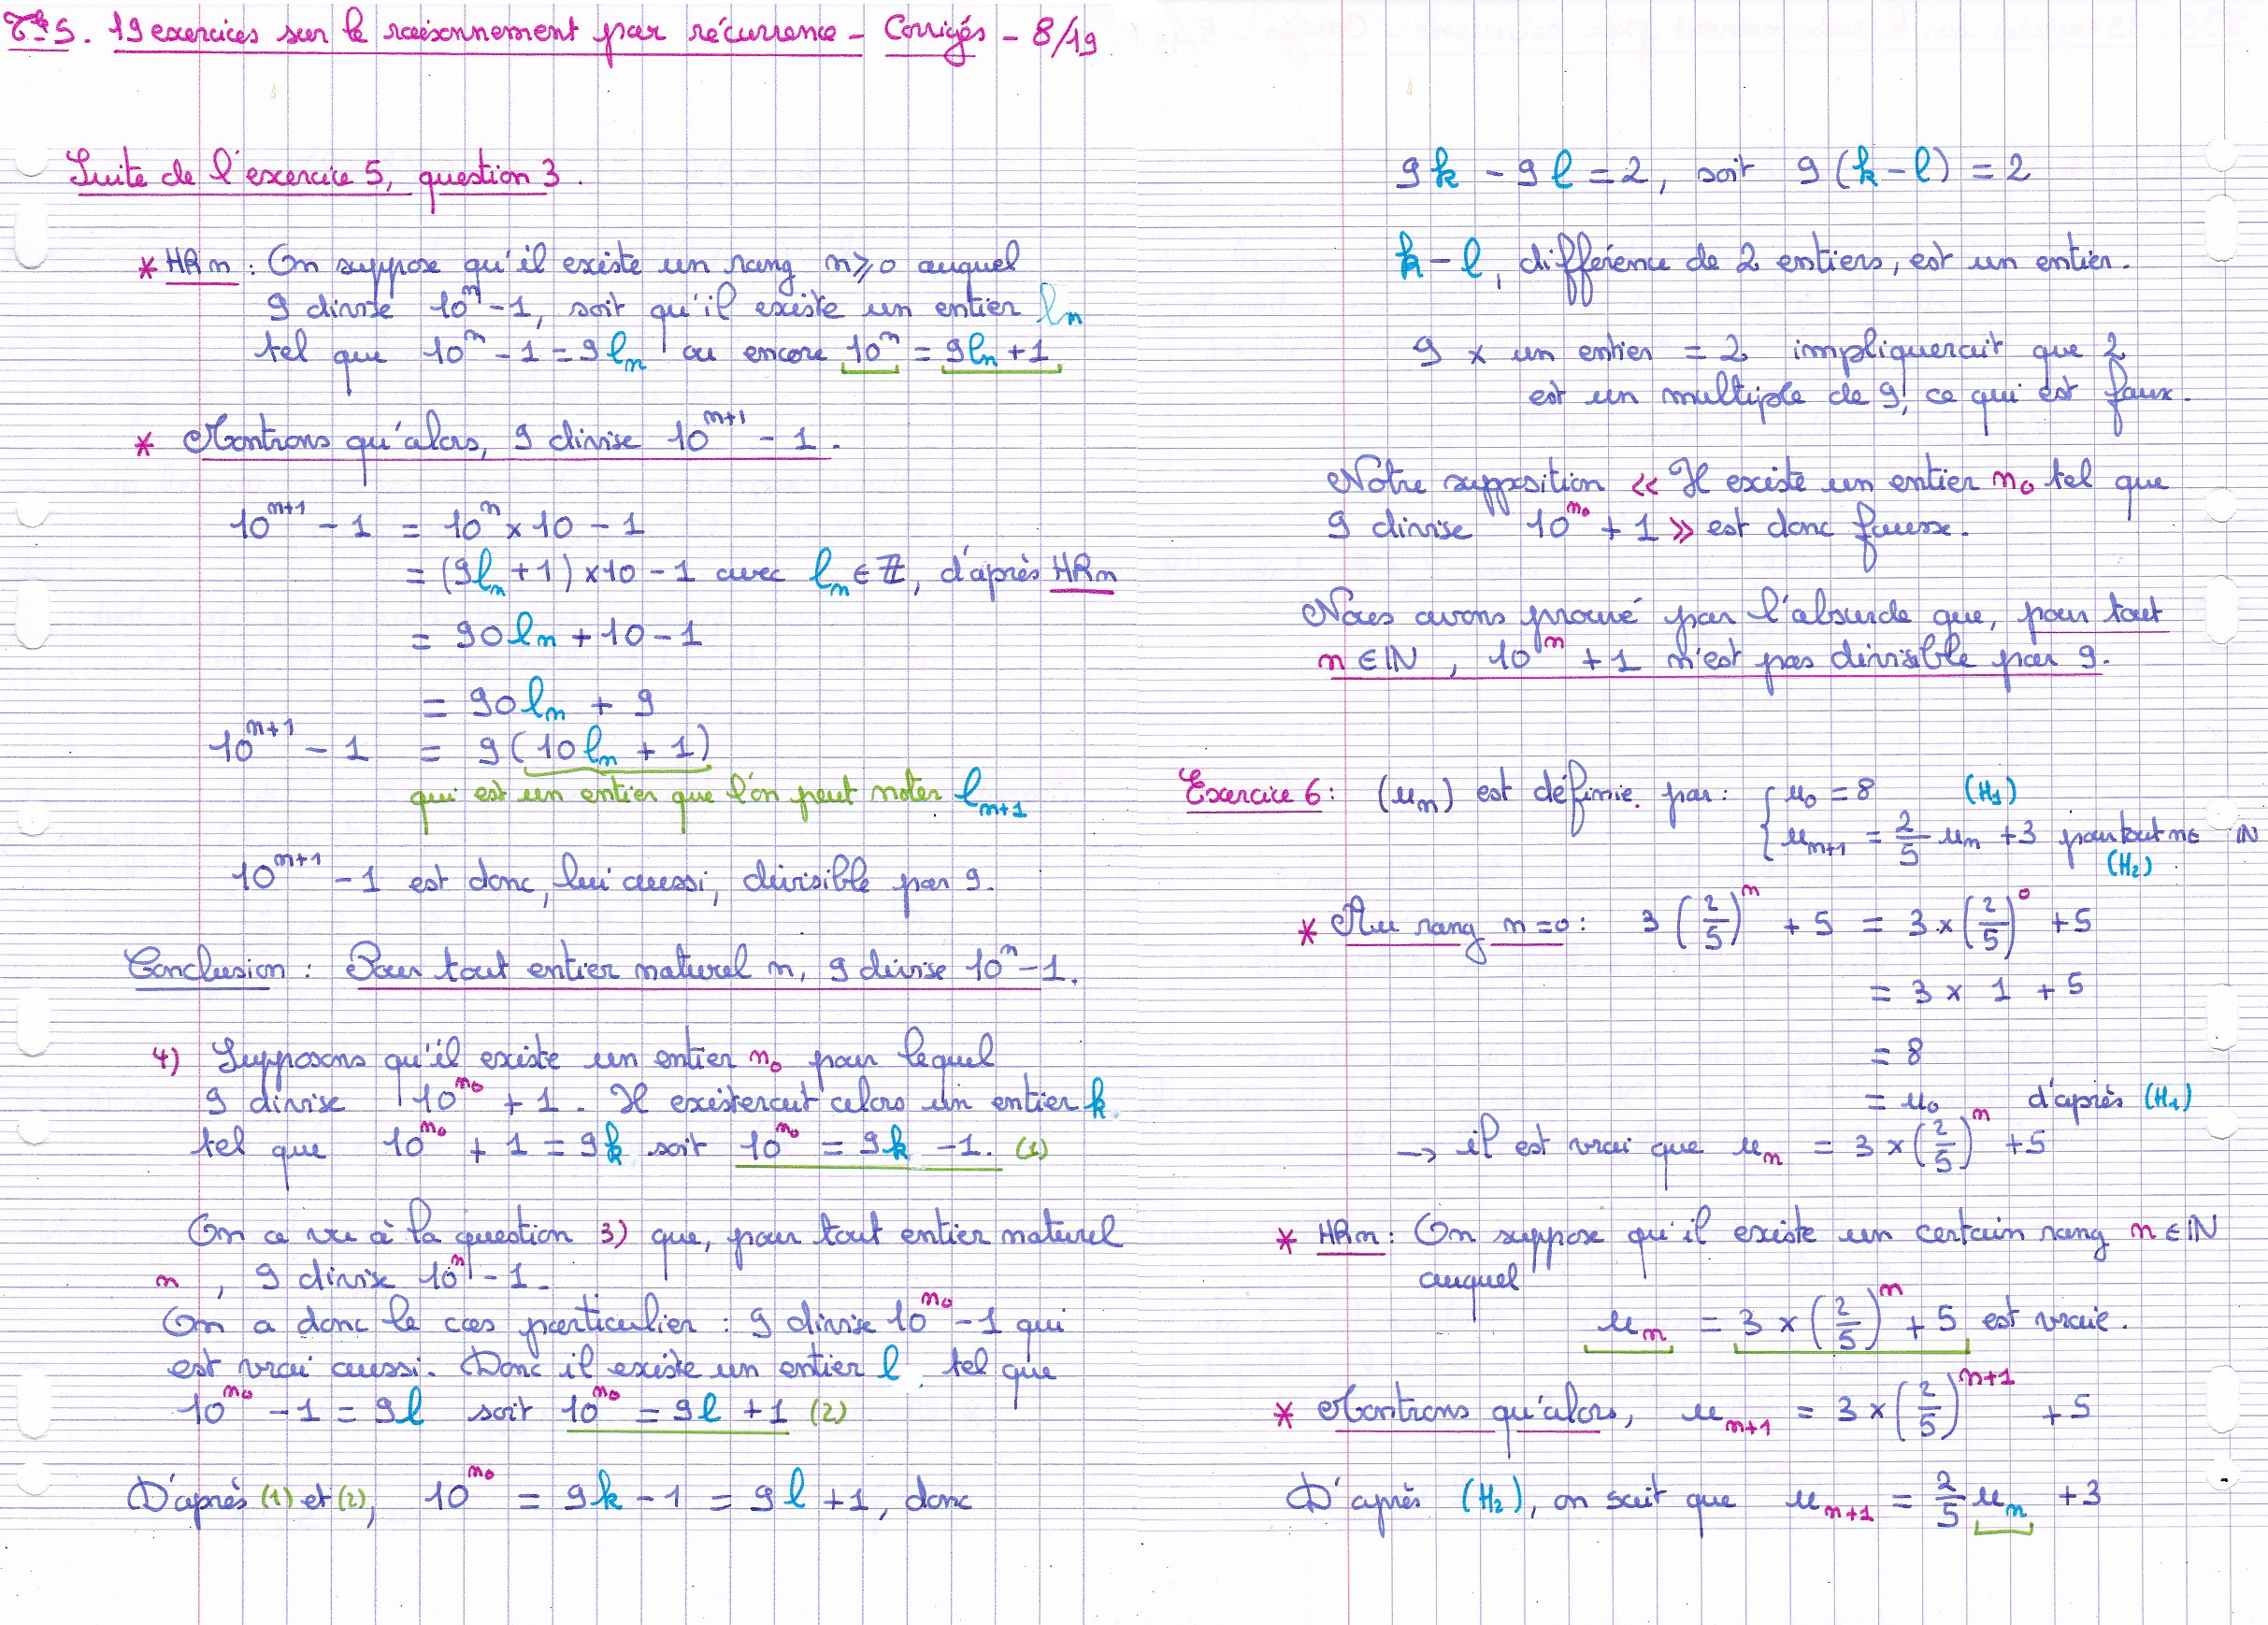 Tle S. 19 exercices sur le raisonnement par récurrence - Corrigés - 8/19
Suite de l'exercice 5, question 3.
* HRn : On suppose qu'il existe un rang n⩾0 auquel
9 divise 10^n - 1, soit qu'il existe un entier l_n
tel que 10^n - 1 = 9l_n ou encore 10^n = 9l_n + 1
* Montrons qu'alors, 9 divise 10^{n+1} - 1.
10^{n+1} - 1 = 10^n × 10 - 1
= (9l_n + 1) × 10 - 1 avec l_n ∈ ℤ, d'après HRn
= 90l_n + 10 - 1
= 90l_n + 9
10^{n+1} - 1 = 9(10l_n + 1)
qui est un entier que l'on peut noter l_{n+1}
10^{n+1} - 1 est donc, lui aussi, divisible par 9.
Conclusion : Pour tout entier naturel n, 9 divise 10^n - 1.
4) Supposons qu'il existe un entier n_0 pour lequel
9 divise 10^{n_0} + 1. Il existerait alors un entier k
tel que 10^{n_0} + 1 = 9k soit 10^{n_0} = 9k - 1. (1)
On a vu à la question 3) que, pour tout entier naturel
n, 9 divise 10^n - 1.
On a donc le cas particulier : 9 divise 10^{n_0} - 1 qui
est vrai aussi. Donc il existe un entier l tel que
10^{n_0} - 1 = 9l soit 10^{n_0} = 9l + 1 (2)
D'après (1) et (2), 10^{n_0} = 9k - 1 = 9l + 1, donc
9k - 9l = 2, soit 9(k - l) = 2
k - l, différence de 2 entiers, est un entier.
9 × un entier = 2 impliquerait que 2
est un multiple de 9, ce qui est faux.
Notre supposition « Il existe un entier n_0 tel que
9 divise 10^{n_0} + 1 » est donc fausse.
Nous avons prouvé par l'absurde que, pour tout
n ∈ ℕ, 10^n + 1 n'est pas divisible par 9.
Exercice 6 : (u_n) est définie par : { u_0 = 8 (H1)
u_{n+1} = 2/5 u_n + 3 pour tout n ∈ ℕ
(H2)
* Au rang n=0 : 3(2/5)^n + 5 = 3 × (2/5)^0 + 5
= 3 × 1 + 5
= 8
= u_0 d'après (H1)
→ il est vrai que u_n = 3 × (2/5)^n + 5
* HRn : On suppose qu'il existe un certain rang n ∈ ℕ
auquel
u_n = 3 × (2/5)^n + 5 est vraie.
* Montrons qu'alors, u_{n+1} = 3 × (2/5)^{n+1} + 5
D'après (H2), on sait que u_{n+1} = 2/5 u_n + 3